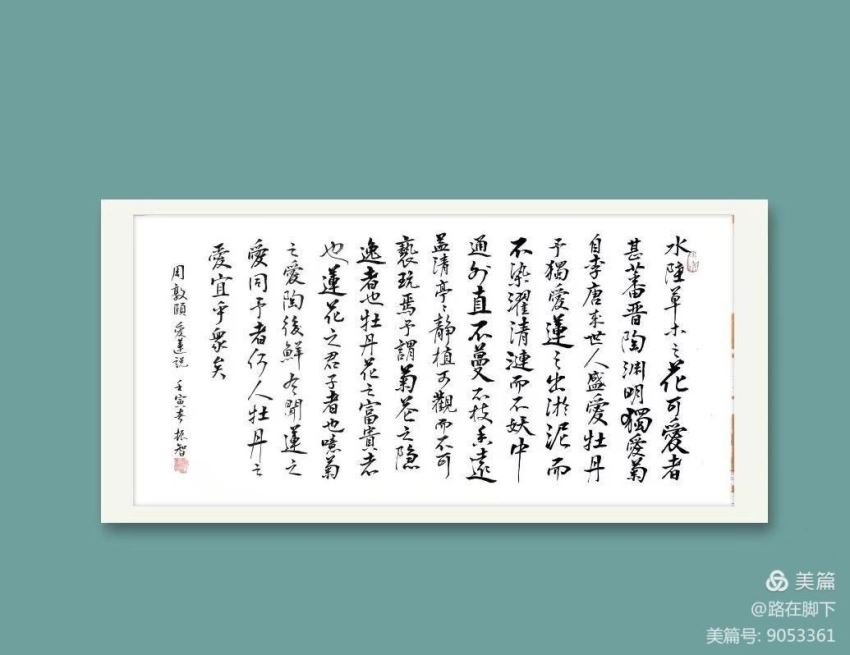 水陸草木之花可愛者
甚蕃晋陶渊明獨愛菊
自李唐来世人盛愛牡丹
予獨愛蓮之出淤泥而
不染濯清漣而不妖中
通外直不蔓不枝香遠
益清亭〻静植可觀而不可
褻玩焉予謂菊花之隐
逸者也牡丹花之富貴者
也蓮花之君子者也噫菊
之愛陶後鮮有聞蓮之
愛同予者何人牡丹之
愛宜乎衆矣
周敦頤爱蓮説 壬寅春振智
美篇
@路在脚下
美篇号: 9053361